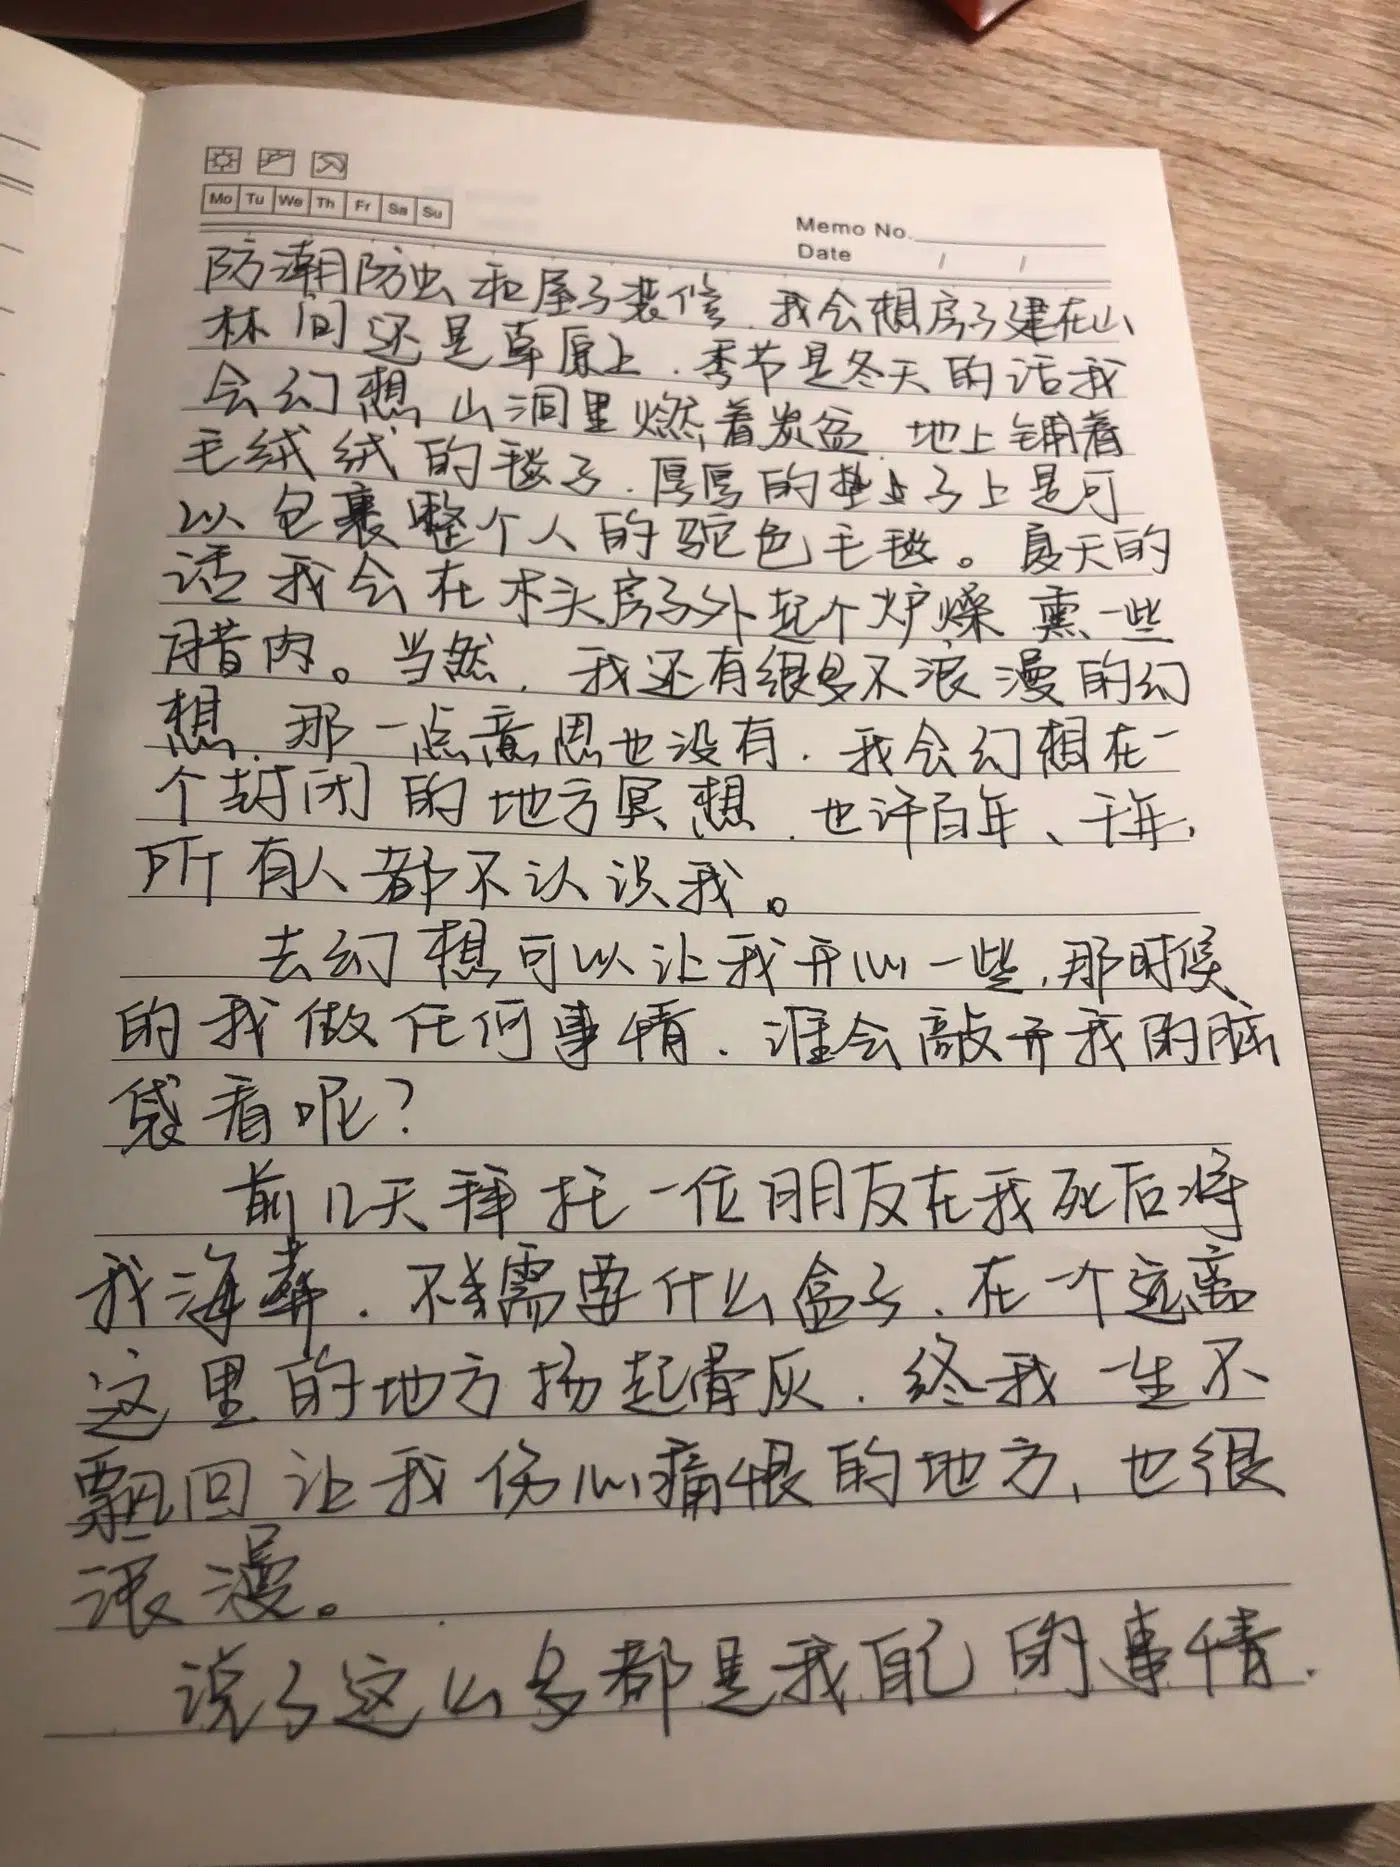 Mo Tu We Th Fr Sa Su
Memo No.
Date / /
防潮防虫和屋子装修，我会想房子建在山
林间还是草原上，季节是冬天的话我
会幻想山洞里燃着炭盆，地上铺着
毛绒绒的毯子，厚厚的垫子上是可
以包裹整个人的驼色毛毯。夏天的
话我会在木头房子外起个炉燥熏一些
腊肉。当然，我还有很多不浪漫的幻
想，那一点意思也没有，我会幻想在一
个封闭的地方冥想，也许百年、千年，
所有人都不认识我。
去幻想可以让我开心一些，那时候
的我做任何事情，谁会敲开我的脑
袋看呢？
前几天拜托一位朋友在我死后将
我海葬，不需要什么盒子，在一个远离
这里的地方扬起骨灰，终我一生不
飘回让我伤心痛恨的地方，也很
浪漫。
说了这么多都是我自己的事情，